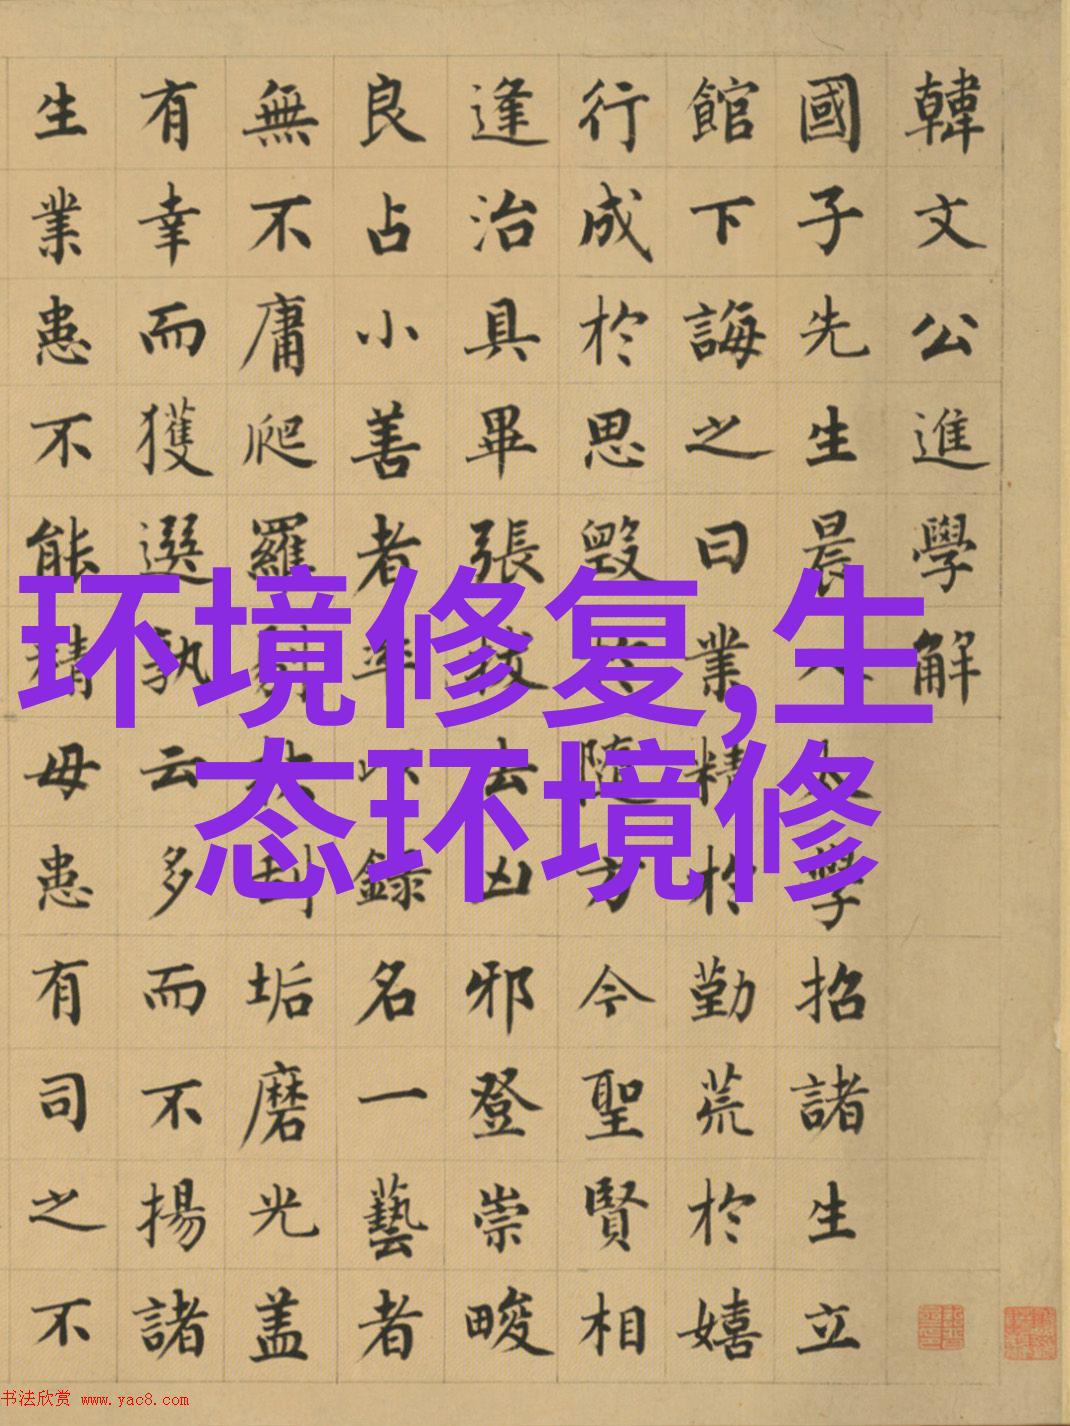 环境修复,生
态环境修
韓文公進學解
國子先生晨入太學招諸生立
館下誨之曰業精於勤荒於嬉
行成於思毀於隨方今聖賢相
逢治具畢張拔去凶邪登崇畯
良占小善者率以錄名一藝者
無不庸爬羅剔抉刮垢磨光盖
有幸而獲選孰云多而不揚諸
生業患不能精毋患有司之不
书法欣赏 www.yac8.com